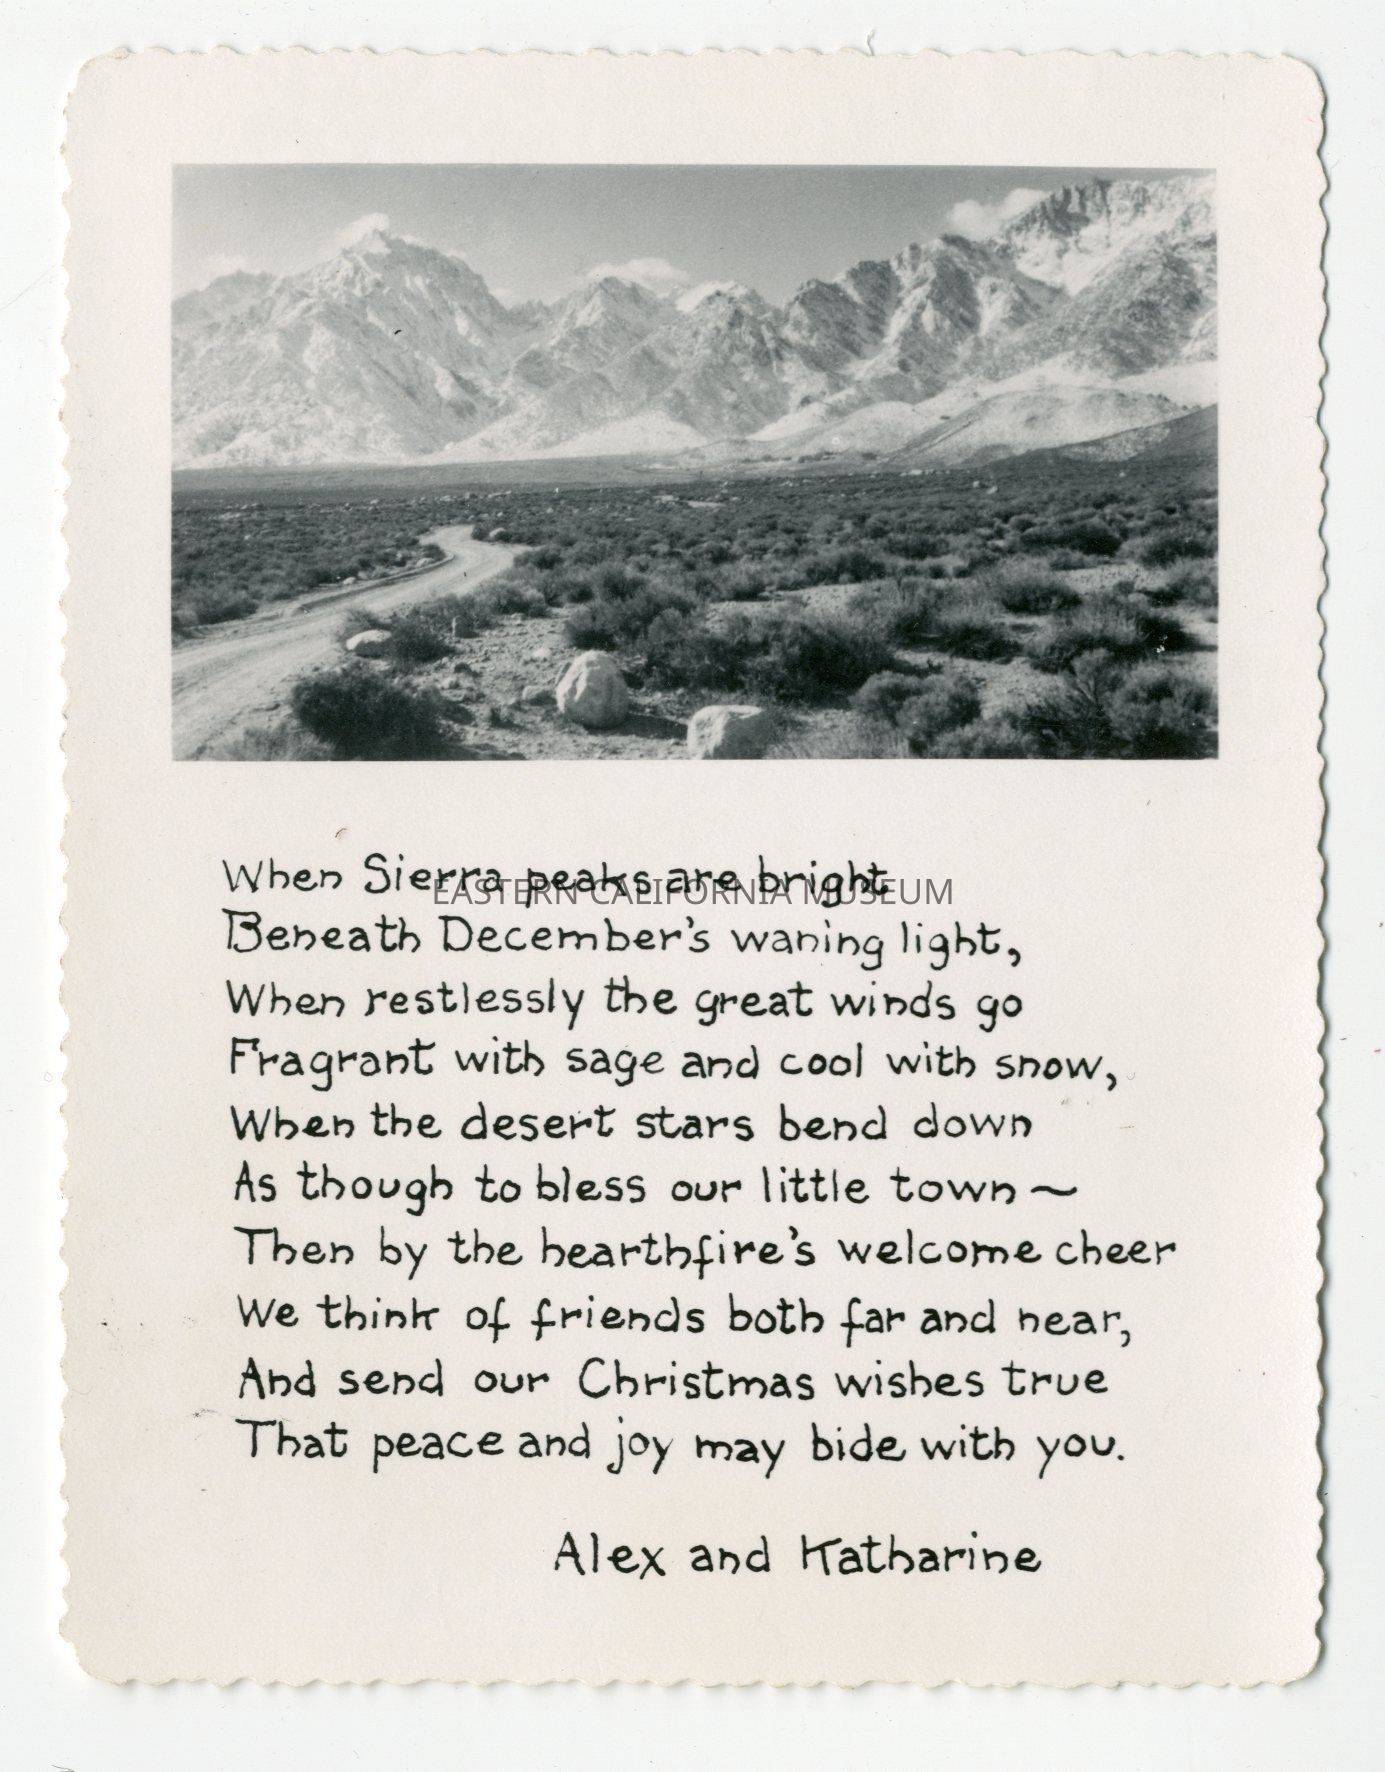 When Sierra peaks are bright
EASTERN CALIFORNIA MUSEUM
Beneath December's waning light,
When restlessly the great winds go
Fragrant with sage and cool with snow,
When the desert stars bend down
As though to bless our little town ~
Then by the hearthfire's welcome cheer
We think of friends both far and near,
And send our Christmas wishes true
That peace and joy may bide with you.
Alex and Katharine